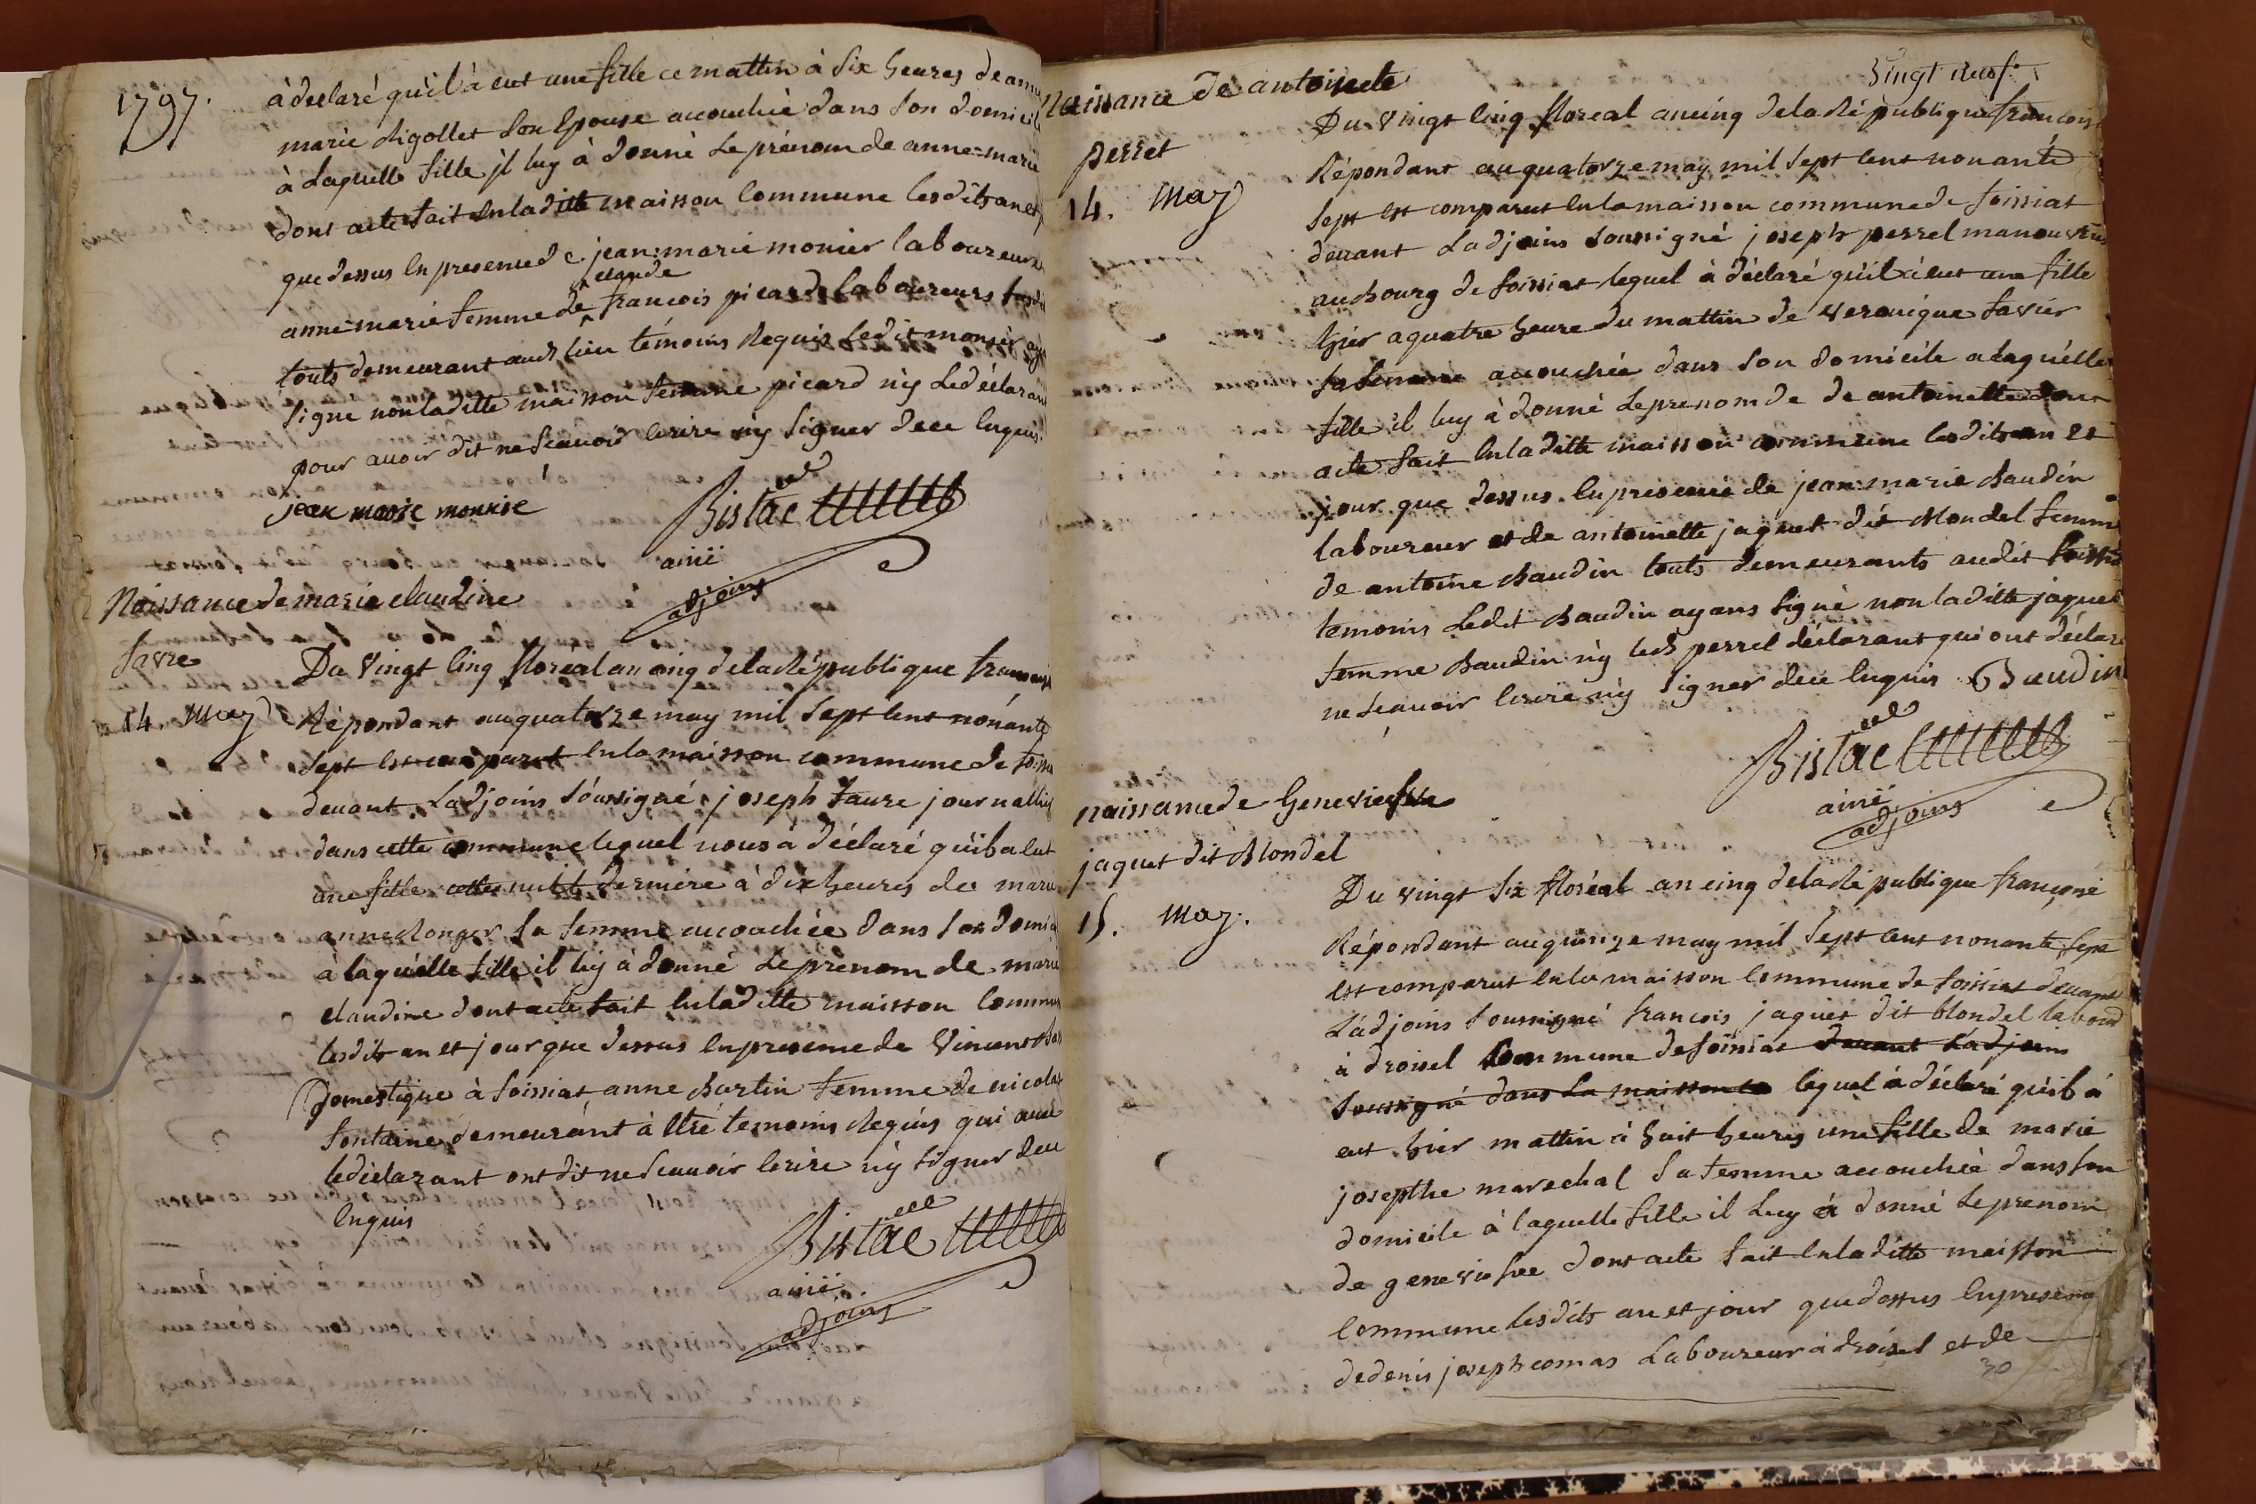 1797.
à declaré qu'il à eut une fille ce mattin à six heures de anne
marie Rigollet son Epouse accouchée dans son domicile
à Laquelle fille il luy à donné Le prénom de anne-marie
dont acte fait en la ditte maisson Commune lesdits an et
que dessus en presence de jean-marie monier laboureurs
claude
anne marie femme de françois picard laboureurs
touts demeurant aud lieu témoins Requis ledit monier
signe non laditte maisson femme picard n'y Le déclarant
pour avoir dit ne scavoir écrire n'y signer de ce enquis
jean marie monnié
Bistac
ainé
adjoint
Naissance de marie claudine
favre
14. May
Du Vingt Cinq floréal an cinq de la Republique françoise
Répondant au quatorze may mil sept cent nonante
sept est comparut en la maisson commune de foissiat
devant L'adjoins soussigné joseph faure journallier
dans cette commune lequel nous à déclaré qu'il a eut
une fille cette nuit derniere à dix heures de marie
anne Monger sa femme accouchée dans son domicile
à laquélle fille il luy à donné Le prenom de marie
claudine dont acte fait en laditte maisson Commune
lesdits an et jour que dessus en presence de Vincent
Domestique à foissiat anne Burtin femme de nicolas
fontaine demeurant à Etré temoins Requis qui avec
le déclarant ont dit ne scavoir écrire n'y signer de ce
enquis
Bistac
ainé
adjoins
Vingt neuf
Naissance de antoinete
perret
14. May
Du Vingt Cinq floreal an cinq de la Republique françoise
Répondant au quatorze may mil sept cent nonante
sept est comparut en la maisson commune de foissiat
devant L'adjoins soussigné joseph perrel manouvrier
au bourg de foissiat lequel à déclaré qu'il à eut une fille
hier a quatre heure du mattin de veronique favier
sa femme accouchée dans son domicile a laquélle
fille il luy à donné Le prenom de de antoinette dont
acte fait en laditte maisson commune lesdits an et
jour que dessus en presence de jean marie Baudin
laboureur et de antoinette jaquet dit Blondel femme
de antoine Baudin touts demeurants audit foissiat
temoins Ledit Baudin ayans signé non laditte jaquet
femme Baudin n'y led perrel déclarant qui ont déclaré
ne scavoir écrire n'y signer de ce enquis Baudin
Bistac
ainé
adjoins
naissance de Genevieve
jaquet dit Blondel
15. May.
Du vingt six floréal an cinq de la Republique françoise
Répondant au quinze may mil sept cent nonante sept
est comparut en la maisson Commune de foissiat devant
L'adjoins soussigné françois jaquet dit blondel labour
à droisel Commune de foissiat devant L'adjoins
soussigné dans la maisson co lequel à déclaré qu'il à
eut hier mattin à huit heures une fille de marie
josepthe marechal sa femme accouchée dans son
domicile à laquelle fille il Luy à donné Le prenom
de genevieve dont acte fait en laditte maisson
Commune lesdits an et jour que dessus en presence
de denis joseph comas Laboureur à droisel et de
30